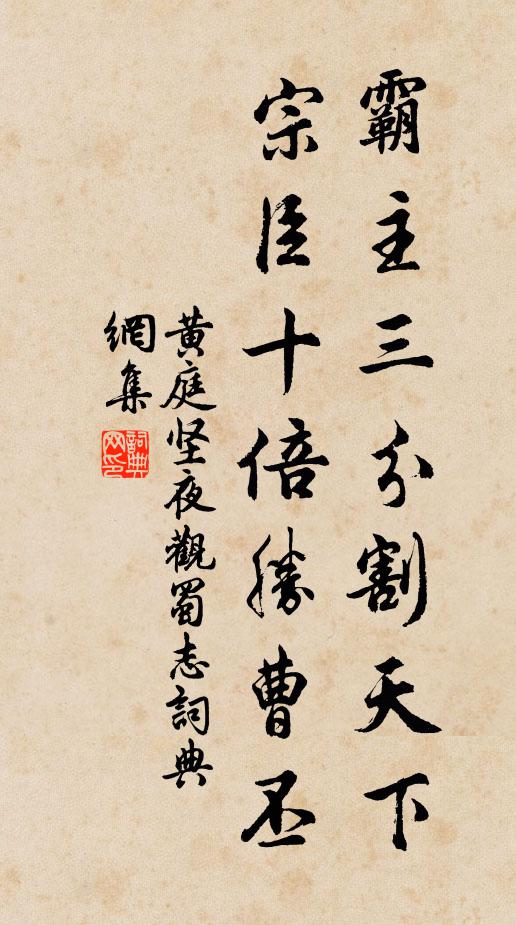 霸主三分割天下
宗臣十倍勝曹丕
黄庭坚夜觀蜀志詞典
網集
詞典
网印